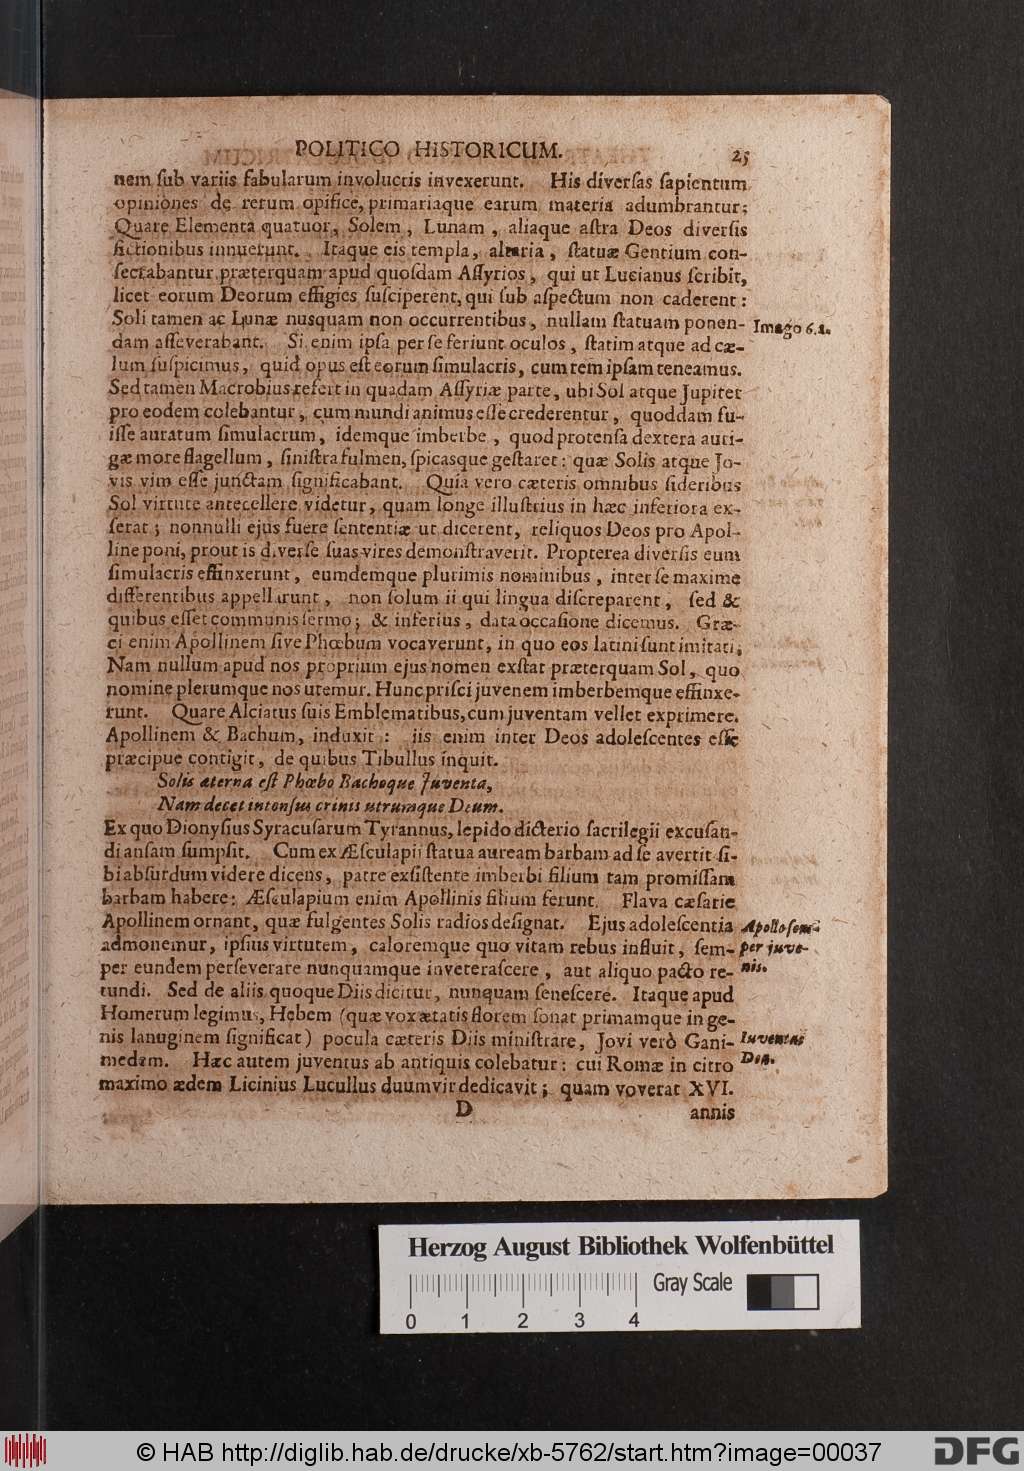 POLITICO HISTORICUM. 25
nem ſub variis fabularum involucris invexerunt. His diverſas ſapientum
opiniones de rerum opifice, primariaque earum materia adumbrantur;
Quare Elementa quatuor, Solem, Lunam, aliaque aſtra Deos diverſis
fictionibus innuerunt. Itaque eis templa, altaria, ſtatuæ Gentium con-
ſecrabantur præterquam apud quoſdam Aſſyrios, qui ut Lucianus ſcribit,
licet eorum Deorum effigies ſuſciperent, qui ſub aſpectum non caderent:
Soli tamen ac Lunæ nusquam non occurrentibus, nullam ſtatuam ponen- Imago 6.1.
dam aſſeverabant. Si enim ipſa per ſe feriunt oculos, ſtatim atque ad cæ-
lum ſuſpicimus, quid opus eſt eorum ſimulacris, cum rem ipſam teneamus.
Sed tamen Macrobius refert in quadam Aſſyriæ parte, ubi Sol atque Jupiter
pro eodem colebantur, cum mundi animus eſſe crederentur, quoddam fu-
iſſe auratum ſimulacrum, idemque imberbe, quod protenſa dextera auri-
gæ more flagellum, ſiniſtra fulmen, ſpicasque geſtaret: quæ Solis atque Jo-
vis vim eſſe junctam ſignificabant. Quia vero cæteris omnibus ſideribus
Sol virtute antecellere videtur, quam longe illuſtrius in hæc inferiora ex-
ſerat; nonnulli ejus fuere ſententiæ ut dicerent, reliquos Deos pro Apol-
line poni, prout is diverſe ſuas vires demonſtraverit. Propterea diverſis eum
ſimulacris effinxerunt, eumdemque plurimis nominibus, inter ſe maxime
differentibus appellarunt, non ſolum ii qui lingua diſcreparent, ſed &
quibus eſſet communis ſermo; & inferius, data occaſione dicemus. Græ-
ci enim Apollinem ſive Phœbum vocaverunt, in quo eos latini ſunt imitati;
Nam nullum apud nos proprium ejus nomen exſtat præterquam Sol, quo
nomine plerumque nos utemur. Hunc priſci juvenem imberbemque effinxe-
runt. Quare Alciatus ſuis Emblematibus, cum juventam vellet exprimere,
Apollinem & Bachum, induxit: iis enim inter Deos adoleſcentes eſſe
præcipue contigit, de quibus Tibullus inquit.
Solis æterna eſt Phœbo Bachoque Juventa,
Nam decet intonſus crinis utrumque Deum.
Ex quo Dionyſius Syracuſarum Tyrannus, lepido dicterio ſacrilegii excuſan-
di anſam ſumpſit. Cum ex Æſculapii ſtatua auream barbam ad ſe avertit ſi-
bi abſurdum videre dicens, patre exſiſtente imberbi filium tam promiſſam
barbam habere: Æſculapium enim Apollinis filium ferunt. Flava cæſarie
Apollinem ornant, quæ fulgentes Solis radios deſignat. Ejus adoleſcentia Apollo ſem-
admonemur, ipſius virtutem, caloremque quo vitam rebus influit, ſem- per juve-
per eundem perſeverare nunquamque inveteraſcere, aut aliquo pacto re- nis.
tundi. Sed de aliis quoque Diis dicitur, nunquam ſeneſcere. Itaque apud
Homerum legimus, Hebem (quæ vox ætatis florem ſonat primamque in ge-
nis lanuginem ſignificat) pocula cæteris Diis miniſtrare, Jovi verò Gani- Iuventas
medem. Hæc autem juventus ab antiquis colebatur: cui Romæ in citro Dea.
maximo ædem Licinius Lucullus duumvir dedicavit; quam voverat XVI.
D annis
Herzog August Bibliothek Wolfenbüttel
Gray Scale
0 1 2 3 4
© HAB http://diglib.hab.de/drucke/xb-5762/start.htm?image=00037
DFG